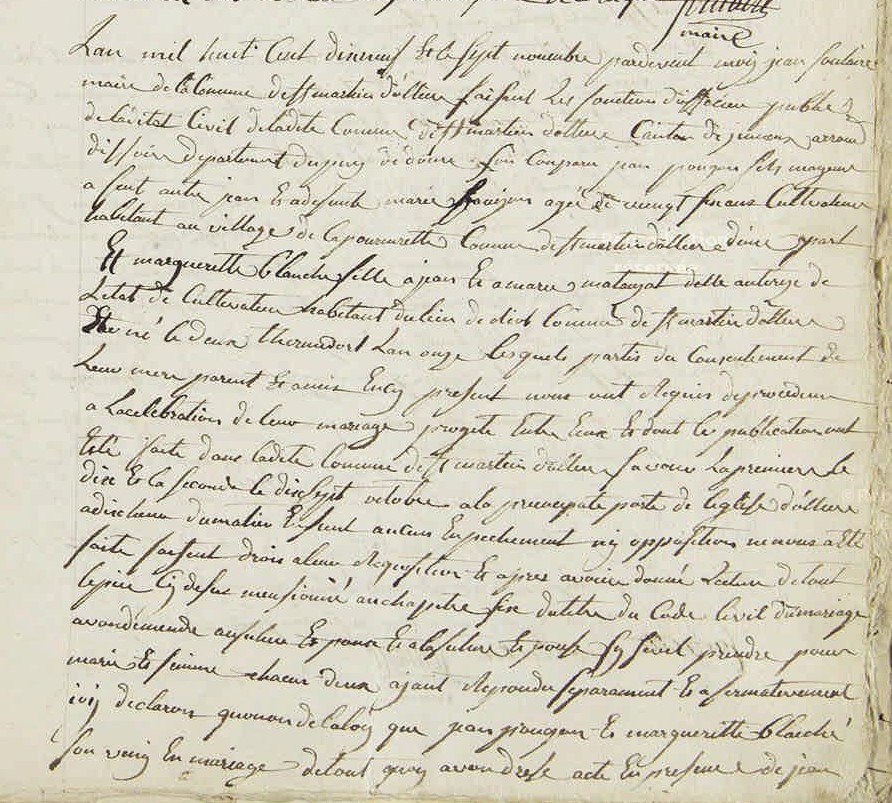 maire
Lan mil huit Cent dixneuf Et le sept novembre pardevent moij jean soulaire
maire de la Commune de St martin dollieres faisent Les fonctions dofficier publice
de létat Civil deladite Commune de St martin dolliere Canton de jumeaux arrond
dissoire departement dupuy de dome son Comparu jean pougon fils mageur
a feut autre jean Et adefunte marie agée de vingt ans Cultivateur
habitant au village de Commune de St martin dolliere dune part
Et margueritte blanche fille a jean Et a marie matayat delle autorize de
Letat de Cultivateur habitant du lieu de Commune de St martin dolliere
né le deux thermidort Lan onze Lesquels partis du Consentement de
Leur mere parent Et amis Encij present nous ont Requis deproceder
a Lacelebration de leur mariage progité Entre Eux Et dont les publication ont
Esté faite dans ladite Commune de St martin dolliere savoir Lapremiere le
dix Et la seconde le dixsept octobre ala principate porte de leglise dolliere
adixheure dumatin Enfeut aucun Enpechement nij opposition nenous a Eté
faite faisent droit aleur Requisition Et apres avoire donné Lecture detout
lepiece Cij desus mensionné auchapitre six dutitre du Code Civil dumariage
avondemende aufuture Epoux Et alafuture Epouse sij sevil prendre pour
marie Et femme chacun deux ajant Repondu separament Et afirmativement
declarons quonon delaloij que jean pougon Et marguerritte blanché
son unij En mariage detout quoij avondresé acte En presence de jean